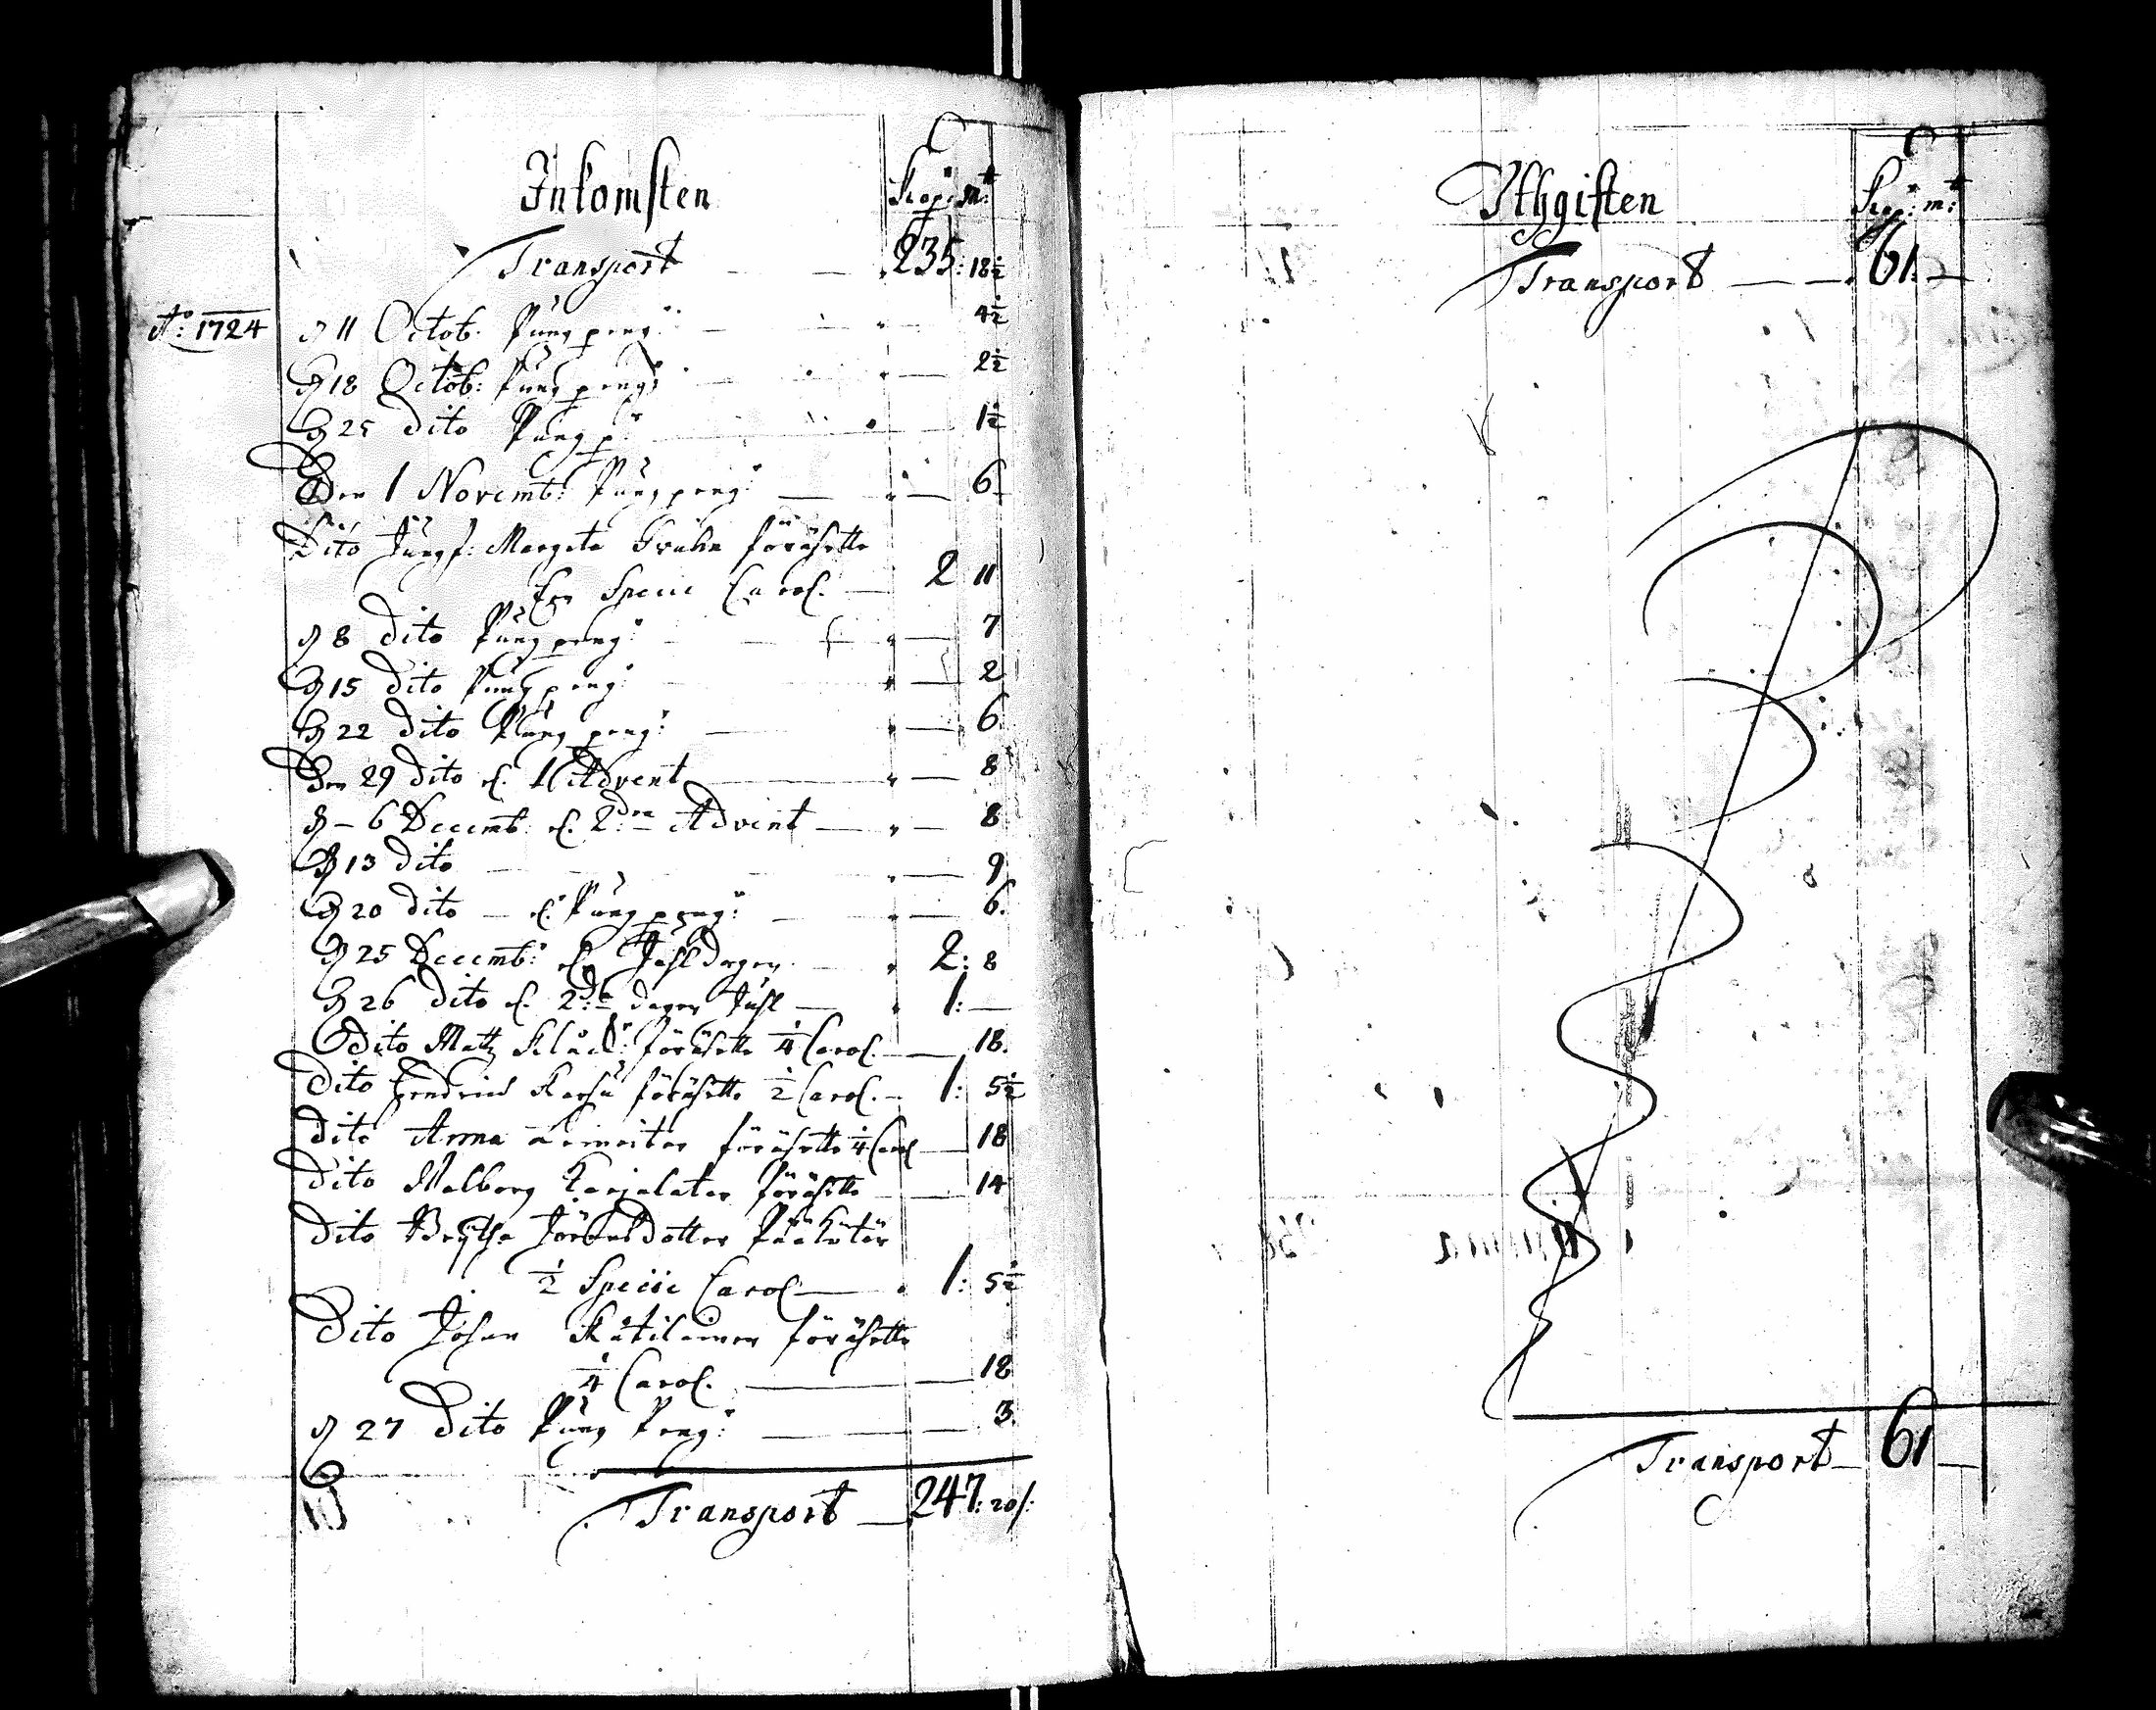 Inkomsten Kop: mt
Transport 235: 18½
Ao: 1724 d 11 Octob: Pung peng: 4½
d 18 Octob: Pung peng: 2½
d 25 Dito Pung p: 1½
Den 1 Novemb: Pung peng: 6
Dito Jungf: Margeta förährte
En Specie Carol. 2 11
d 8 Dito Pung peng: 7
d 15 Dito Pung peng: 2
d 22 Dito Pung peng: 6
Den 29 Dito el. 1 Advent 8
d 6 Decemb: el. 2:dra Advent 8
d 13 Dito 9
d 20 Dito el. Pung peng: 6
d 25 Decemb: el. Juhldagen 2: 8
d 26 Dito el. 2:dra dagen Juhl 1:
Dito Matz förährte ¼ Carol. 18
Dito Hendrich Karhu förährte ½ Carol. 1: 5½
Dito Anna förährte ¼ Carol 18
Dito Walborg Karjalatar förährte 14
Dito Brytha Jöransdotter
½ Specie Carol 1: 5½
Dito Johan Kåtilainen förährte
¼ Carol. 18
d 27 Dito Pung Peng: 3
Transport 247: 20/:
Uthgiften Kop: mt
Transport 61:
Transport 61